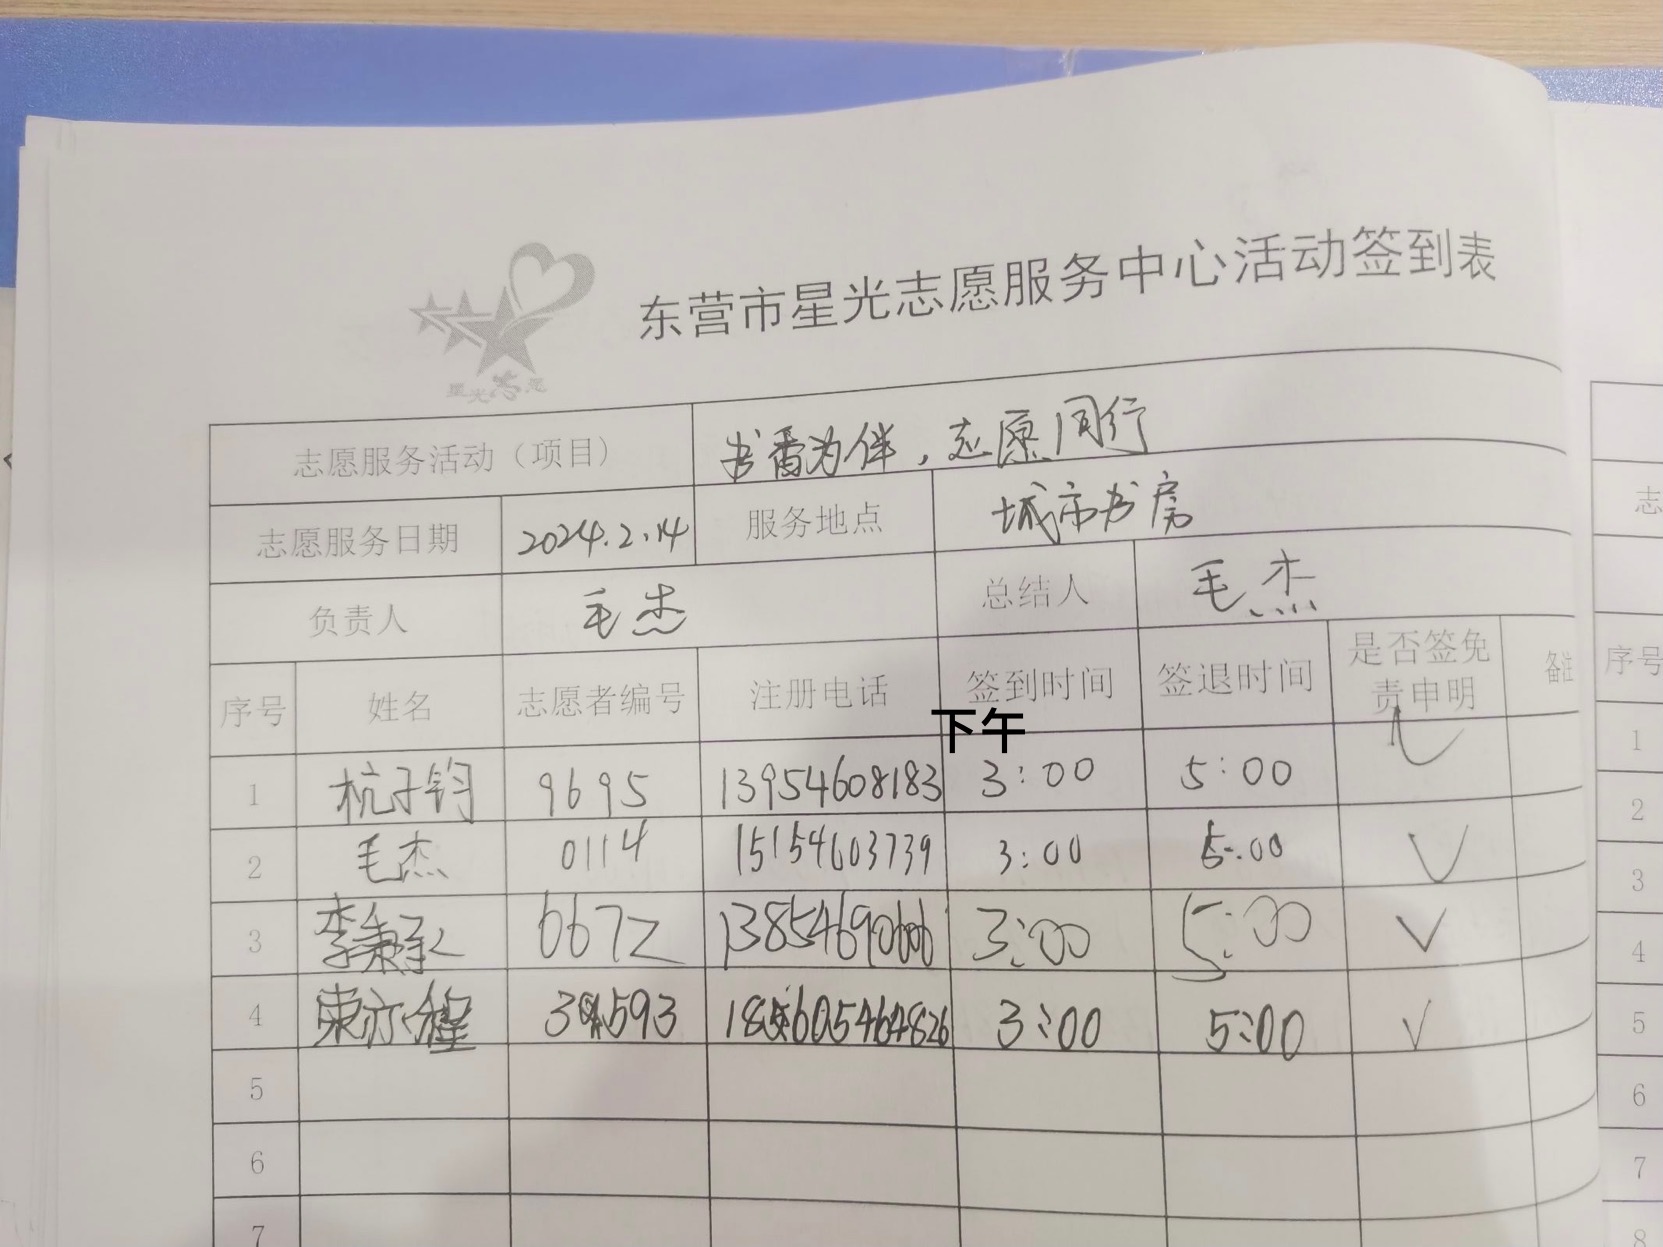 东营市星光志愿服务中心活动签到表
星光志愿
志愿服务活动（项目） 书香为伴，志愿同行
志愿服务日期 2024.2.14 服务地点 城市书房
负责人 毛杰 总结人 毛杰
序号 姓名 志愿者编号 注册电话 签到时间 签退时间 是否签免责申明 备注
下午
1 杭子钧 9695 13954608183 3:00 5:00 ✓
2 毛杰 0114 15154603739 3:00 5:00 ✓
3 李秉承 6672 13854690606 3:00 5:00 ✓
4 593 3:00 5:00 ✓
5
6
7
志
序号
1
2
3
4
5
6
7
8